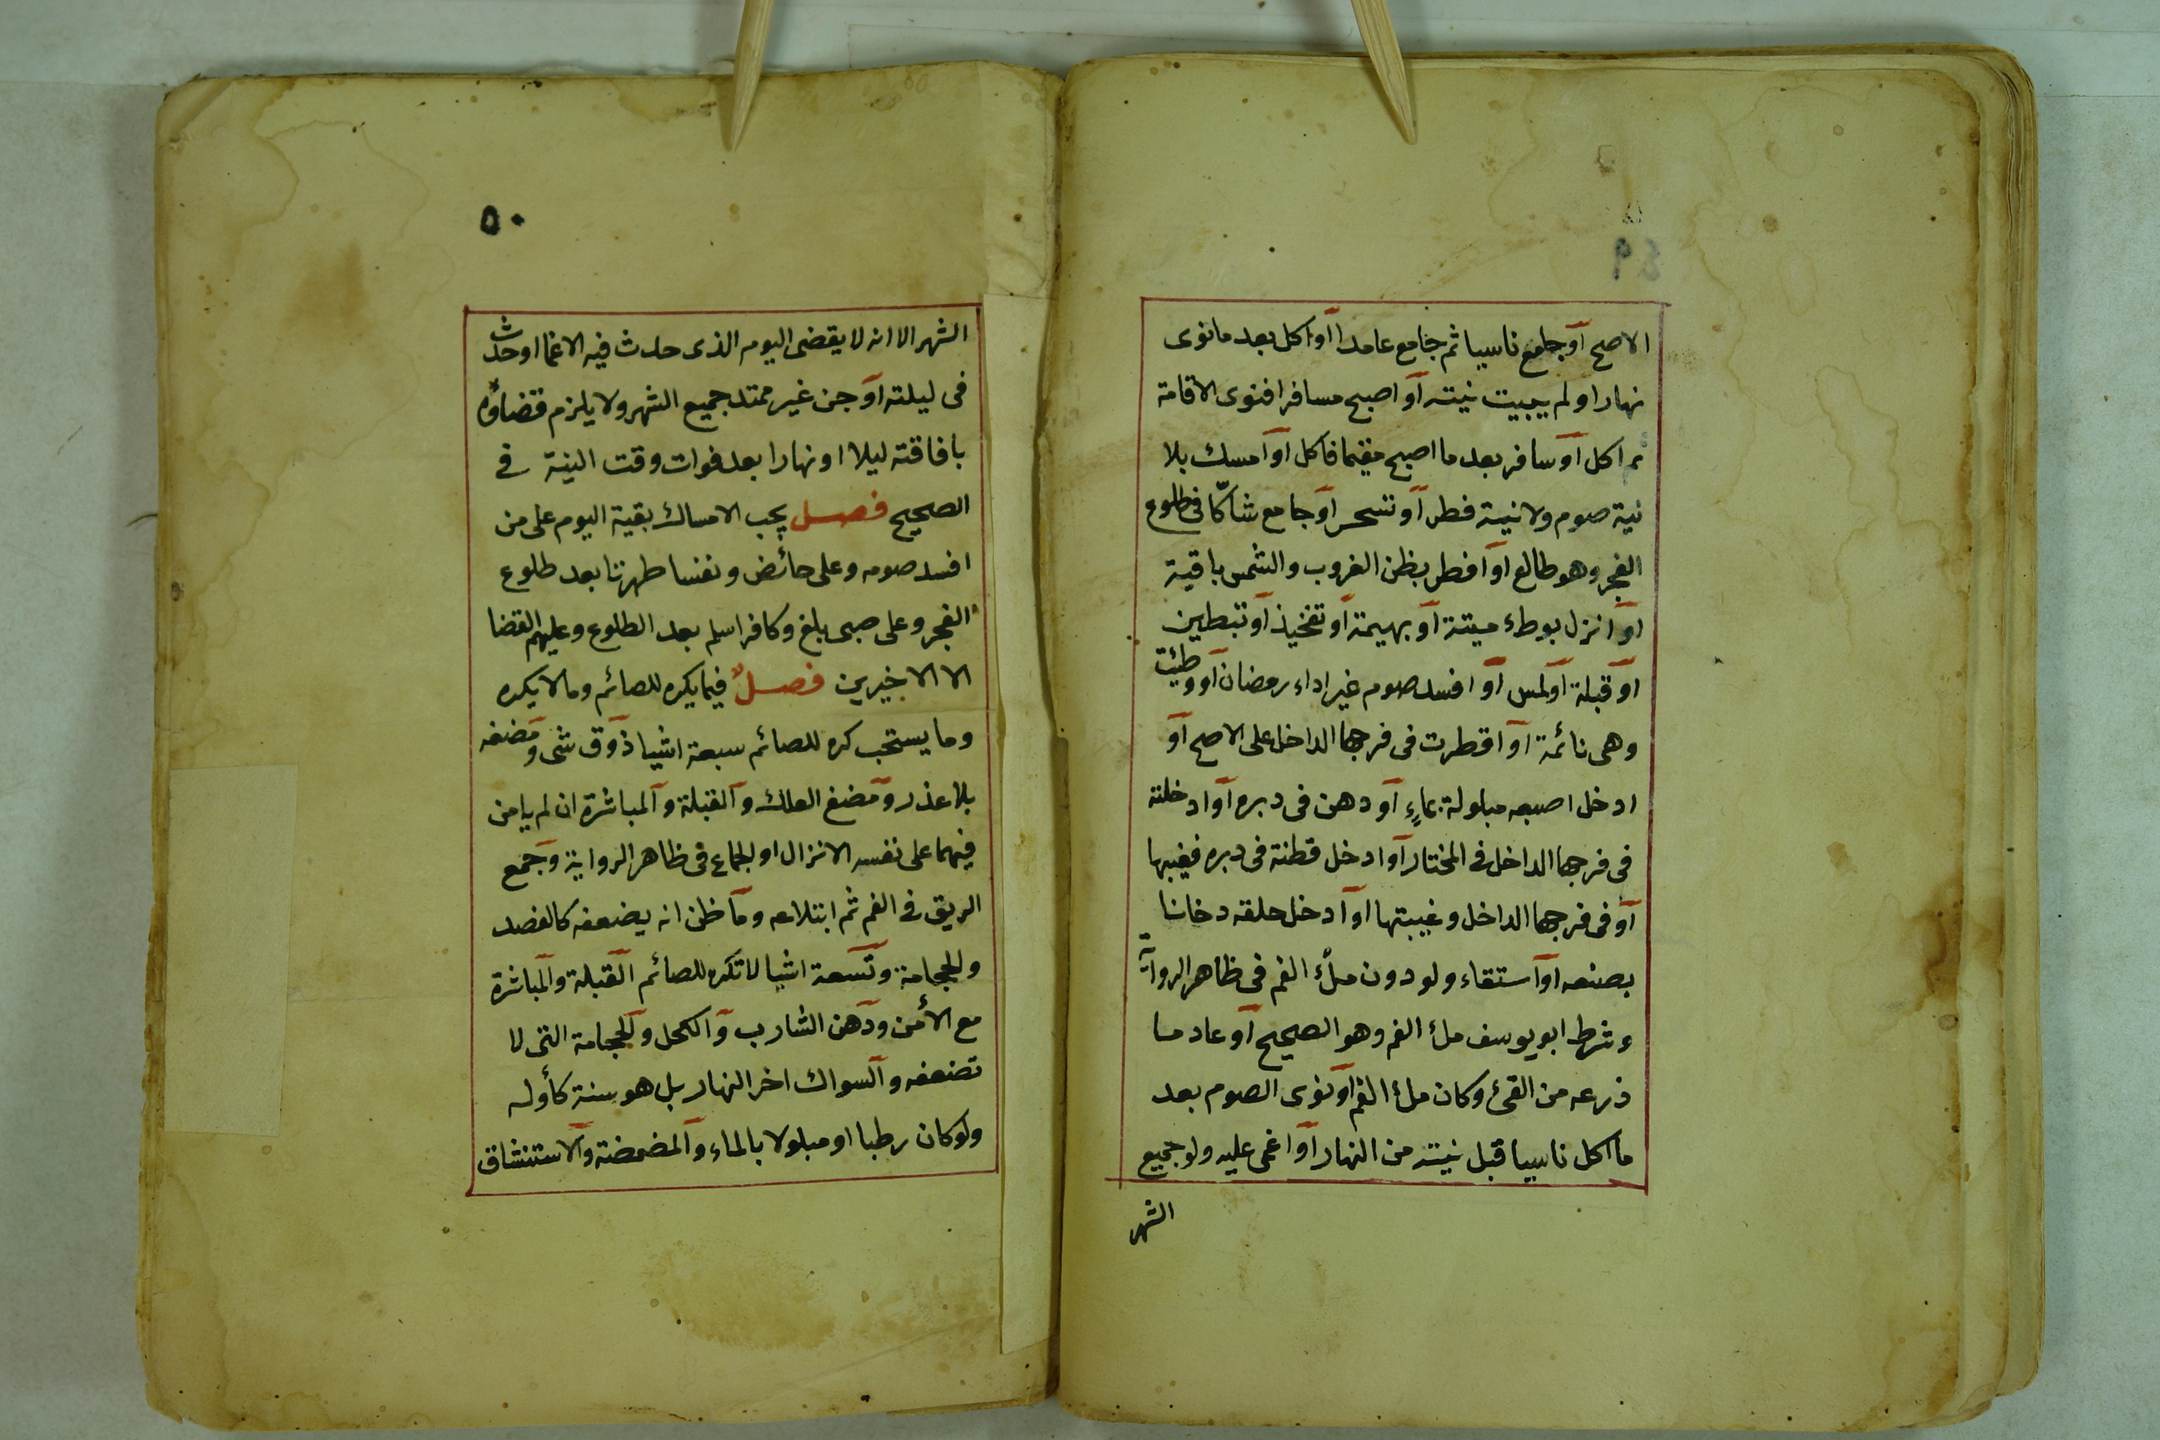 الاصح او جامع ناسيا ثم جامع عامدا او اكل بعد ما نوى
نهارا ولم يبيت نيته او اصبح مسافرا فنوى الاقامة
ثم اكل او سافر بعد ما اصبح مقيما فاكل او امسك بلا
نية صوم ولا نية فطر او تسحر او جامع شاكّا فى طلوع
الفجر وهو طالع او افطر بظن الغروب والشمس باقية
او انزل بوطء ميتة او بهيمة او تفخيذ او تبطين
او قبلة او لمس او افسد صوم غير اداء رمضان او وطئت
وهى نائمة او اقطرت فى فرجها الداخل على الاصح او
ادخل اصبعه مبلولة بماءٍ او دهن فى دبره او ادخلته
فى فرجها الداخل فى المختار او ادخل قطنة فى دبره فغيبها
او فى فرجها الداخل وغيبتها او ادخل حلقه دخانا
بصنعه او استقاء ولو دون ملأ الفم فى ظاهر الرواية
وشرط ابو يوسف ملأ الفم وهو الصحيح او عاد ما
ذرعه من القئ وكان ملأ الفم او نوى الصوم بعد
ما اكل ناسيا قبل نيته من النهار او اغمى عليه ولو جميع
الشهر
٥٠
الشهر الا انه لا يقضى اليوم الذى حدث فيه الاغما او حدث
فى ليلته او جن غير ممتد جميع الشهر ولا يلزم قضاؤه
بافاقته ليلا او نهارا بعد فوات وقت النية فى
الصحيح فصل يجب الامساك بقية اليوم على من
افسد صومه وعلى حائض ونفسا طهرتا بعد طلوع
الفجر وعلى صبى بلغ وكافر اسلم بعد الطلوع وعليهم القضا
الا الاخيرين فصلٌ فيما يكره للصائم وما لا يكره
وما يستحب كره للصائم سبعة اشيا ذوق شى ومضغه
بلا عذر ومضغ العلك والقبلة والمباشرة ان لم يامن
فيهما على نفسه الانزال او الجماع فى ظاهر الرواية وجمع
الريق فى الفم ثم ابتلاعه وما ظن انه يضعفه كالفصد
والحجامة وتسعة اشيا لا تكره للصائم القبلة والمباشرة
مع الأمن ودهن الشارب والكحل والحجامة التى لا
تضعفه والسواك اخر النهار بل هو سنة كأوله
ولو كان رطبا او مبلولا بالماء والمضمضة والاستنشاق